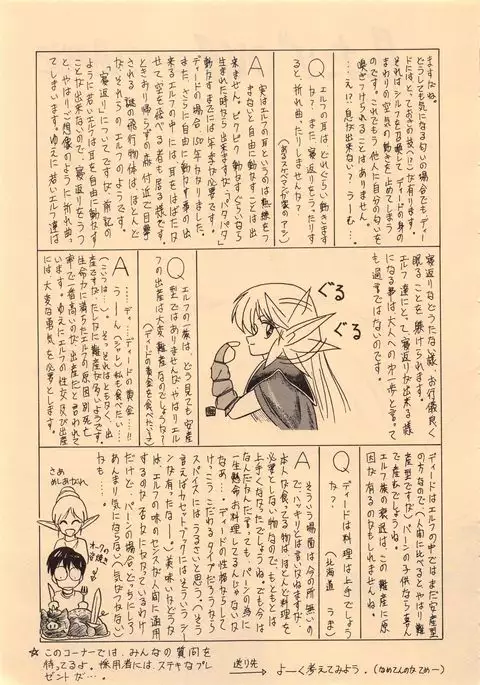 ますだね。
どうしても気になる匂いの場合でもディー
ドには、とっておきの技(!?)が有ります。
それはシルフを召喚して、ディードの身の
まわりの空気の動きを止めてしまう
のです。これでもう他人に自分の匂いを
嗅ぎつけられることはありません。
……え!?息が出来ない?うーむ……。
Q
エルフの耳はどれぐらい動きます
か?また、寝返りをうったりす
ると、折れ曲ったりしませんか?
A
実はエルフの耳というのは熟練をつ
まないと自由に動かすことは出
来ません。ピクピクと動かすぐらいなら
生まれた時から出来ますが、「パタパタ」
動かすまでには が必要です。
ディードの場合、150年かかりました。
また、さらに自由に動かす事の出
来るエルフの中には、耳をはばたか
せて、空を飛べる者も居る様です。
ときおり帰らずの森付近で目撃
される謎の飛行物体は、ほとんど
が、それらのエルフのようです。
「寝返り」についてですが、前記の
ように若いエルフは耳を自由に動かす
ことが出来ないので、寝返りをうつ
と、やはりご想像のように折れ曲っ
てしまいます。ゆえに若いエルフ達は
寝返りなどうたない様、お行儀良く
眠ることを躾けられます。
エルフ達にとって、寝返りが出来る様
になる事は大人への第一歩と言って
も過言ではないのです。
ぐる
ぐる
Q
エルフの一族は、どう見ても安産
型ではありませんが、やはりエル
フの出産は大変難産なのでしょうか?
(ディードの黄金を食べたい!)
A
……デ、……ディードの黄金…!!
うーん、(シャレ)私も食べたい…!!
(こいつは…。)…そ、それはともかく、出
産ですが、たしかに難産なようです。
生命力に満ちたエルフの原因別死亡
率で一番高いのが、出産だと言われて
います。ゆえにエルフの性交及び出産
には大変な勇気を必要とします。
ディードはエルフの中ではまだ安産型
の方なので、人間に比べるとやはり難
産型ですが、パーンの子供なら喜ん
で産むでしょうね。
エルフ族の衰退は、この難産に原
因が有るのかもしれませんね。
Q
ディードは料理は上手でしょう
か?
(北海道 うま)
A
そういう場面は今の所無いの
で、ハッキリとは言いかねますが、
本人が食ってる物は、ほとんど料理を
必要としない物なので、もともとは
上手くなかったでしょうね。でも今は
なんだかんだ言っても、パーンの為に
一生懸命お料理してるんじゃないか
なあ…。ディードの性格ならして
けっこうこだわるタイプだろうから
スパイスにはうるさいと思う。(そう
言えばカセットブックにはそういうシー
ンが有ったなー。)美味いかどうか
は、エルフの味のセンスが人間に通用
するのか否かになっているわけ
だけど、パーンの場合、どっちにしろ
あんまり気にならない(気がつかない)
かも…。
さあ
めしあがれ
オークの姿焼き
☆このコーナーでは、みんなの質問を
待ってるよ。採用者には、ステキなプレ
ゼントが…。
送り先
→よーく考えてみよう。(なめてんのかてめー)